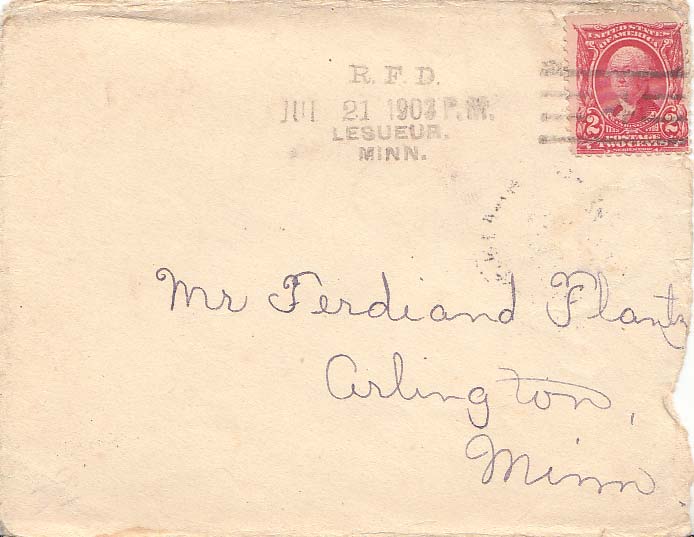 R. F. D.
JUL 21 1903 P.M.
LESUEUR.
MINN.
UNITED STATES
OF AMERICA
2 2
POSTAGE
TWO CENTS
Mr Ferdiand Flantz
Arlington,
Minn.